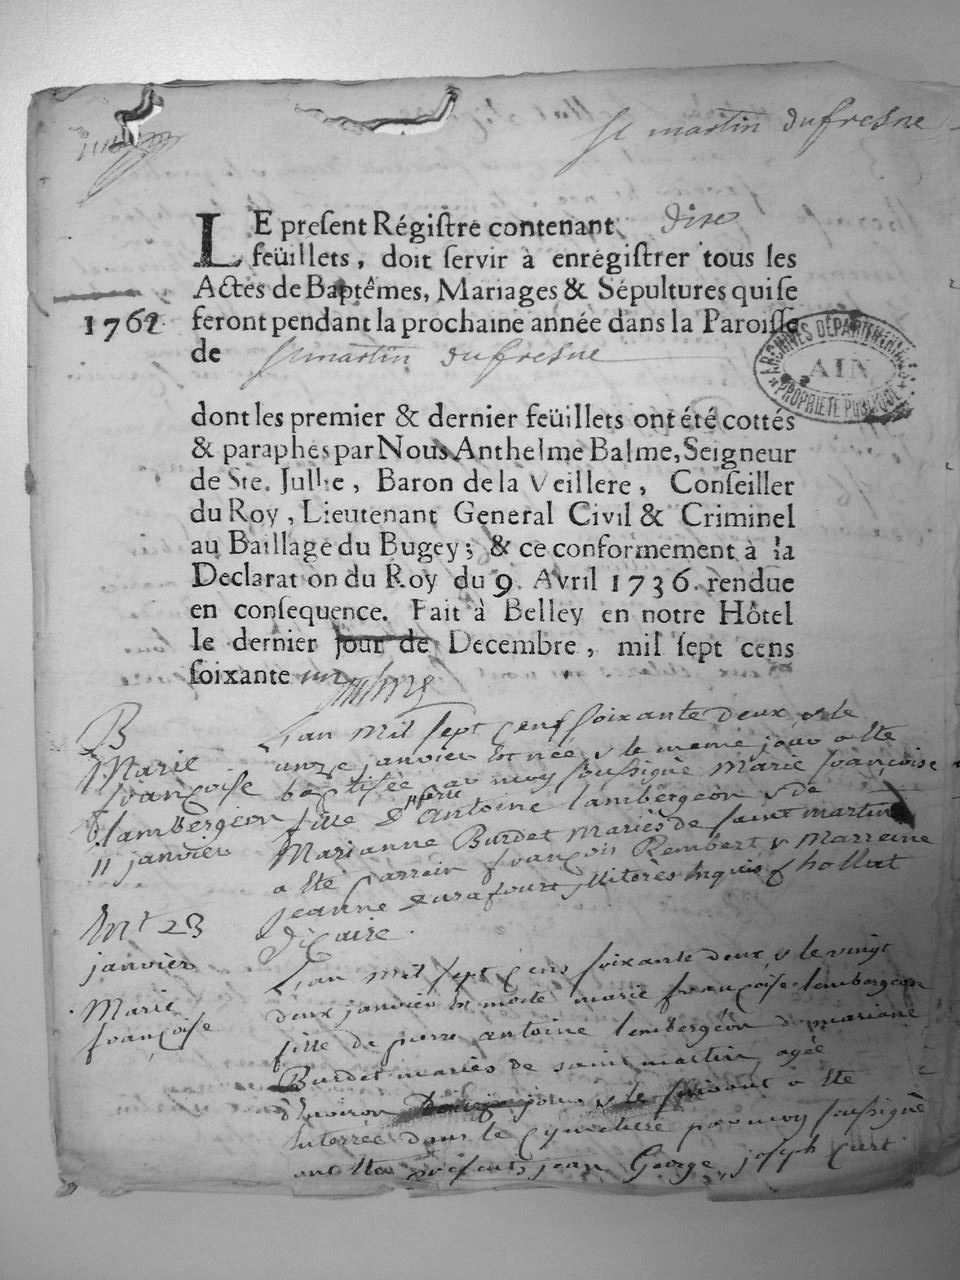 St martin dufresne
LE preſent Régiſtre contenant dix
feüillets, doit ſervir à enregiſtrer tous les
Actes de Baptêmes, Mariages & Sépultures qui ſe
1762 feront pendant la prochaine année dans la Paroiſſe
de St martin dufresne
ARCHIVES DÉPARTEMENTALES
AIN
PROPRIÉTÉ PUBLIQUE
dont les premier & dernier feüillets ont été cottés
& paraphés par Nous Anthelme Balme, Seigneur
de Ste. Jullie, Baron de la Veillere, Conſeiller
du Roy, Lieutenant General Civil & Criminel
au Baillage du Bugey; & ce conformement à la
Declaration du Roy du 9. Avril 1736. rendue
en conſequence. Fait à Belley en notre Hôtel
le dernier jour de Decembre, mil ſept cens
ſoixante un
B
Marie
françoise
lambergeon
11 janvier
Lan mil sept cens soixante deux & le
unze janvier est née & le meme jour a ete
baptisée par moy sussigné marie françoise
fille d pierre Antoine lambergeon & de
Marianne Burdet mariés de saint martin
a eté parrein françois Rembert & marreine
jeanne illiterés
vicaire.
Ent 23
janvier
Marie
françoise
Lan mil sept cens soixante deux & le vingt
deux janvier est morte marie françoise lembergeon
fille de pierre antoine lembergeon & mariane
Burdet mariés de saint martin agée
d'environ jours & le suivant a ete
enterrée dans le cymetiere par moy sussigné
ont eté présents jean George joseph